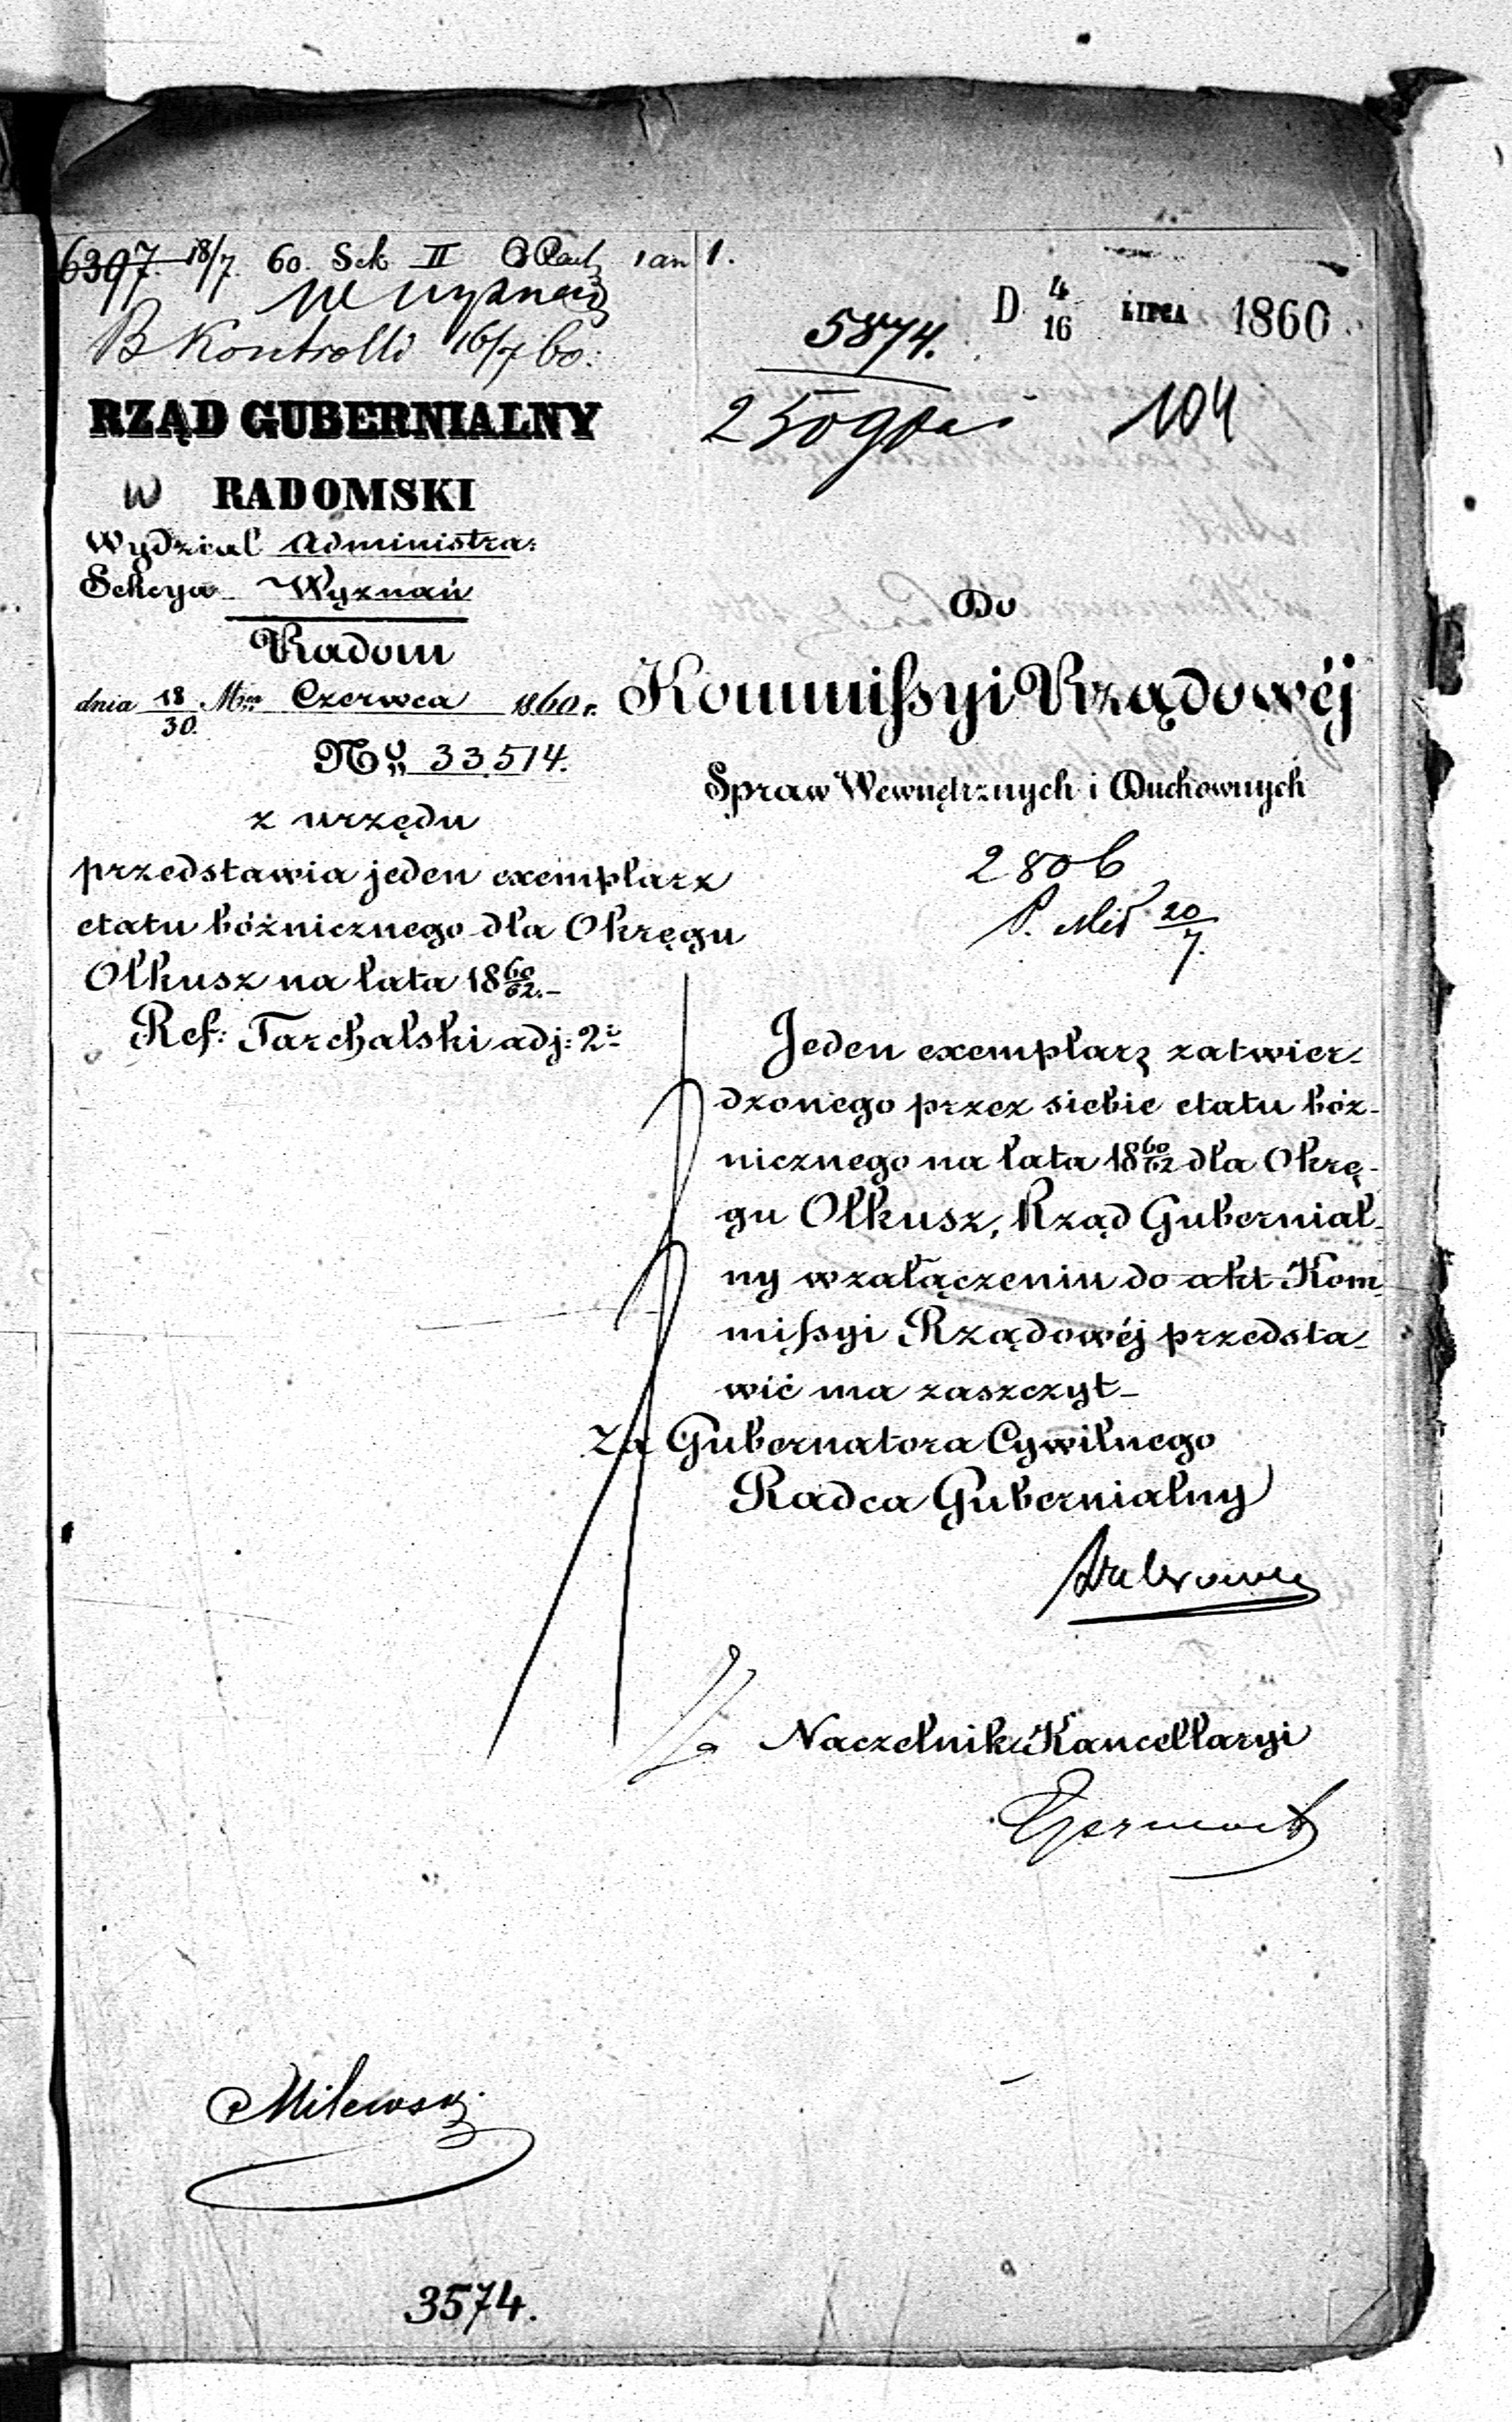 6397. 18/7 60. Sek II
B Kontrolli 16/7 60.
RZĄD GUBERNIALNY
W RADOMSKI
Wydział Administra:
Sekcya Wyznań
Radom
dnia 18/30 Mca Czerwca 1860 r.
No 33,514.
z urzędu
przedstawia jeden exemplarz
etatu bóżnicznego dla Okręgu
Olkusz na lata 18 60/62.–
Ref: Tarchalski adj: 2i
1.
D 4/16 LIPCA 1860
5874.
104
Do
Kommissyi Rządowéj
Spraw Wewnętrznych i Duchownych
2806
20/7.
Jeden exemplarz zatwier-
dzonego przez siebie etatu bóż-
nicznego na lata 18 60/62 dla Okrę-
gu Olkusz, Rząd Gubernial-
ny w załączeniu do akt Kom-
missyi Rządowéj przedsta-
wić ma zaszczyt–
Za Gubernatora Cywilnego
Radca Gubernialny
Za Naczelnika Kancellaryi
Milewski
3574.